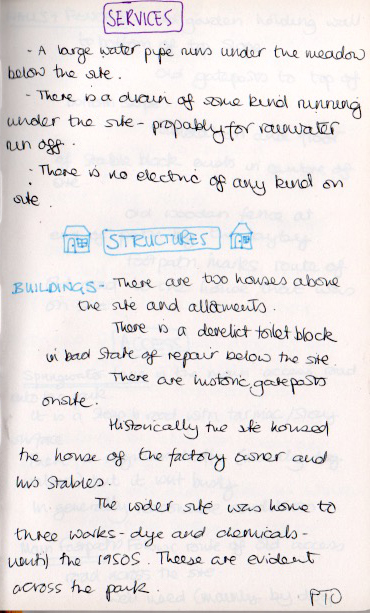 SERVICES
- A large water pipe runs under the meadow
below the site.
- There is a drain of some kind running
under the site - propably for rainwater
run off.
- There is no electric of any kind on
site.
STRUCTURES
BUILDINGS - There are two houses above
the site and allotments.
There is a derelict toilet block
in bad state of repair below the site
There are historic gateposts
onsite.
Historically the site housed
the house of the factory owner and
his stables.
The wider site was home to
three works - dye and chemicals -
until the 1950s. Theese are evident
across the park.
PTO